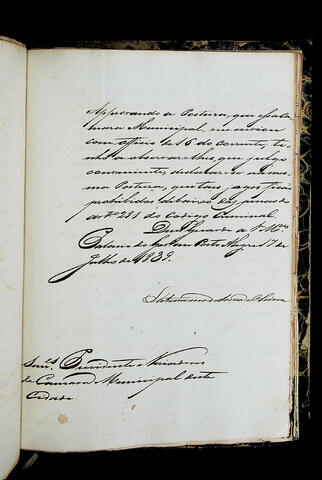 Approvando a Postura, que essa Ca-
mara Municipal, me enviou
com officio de 16 do corrente, te-
nho a observar lhes que julgo
conveniente, declarar-se na mes-
ma Postura, que taes jogos são
prohibidos debaixo das penas do
Art.º 281 do Codigo Criminal.
Deos Guarde a V. M.ces
Palacio do Governo Porto Alegre 17 de
Julho de 1839.
Saturnino
Senr.es Presidente e Vereadores
da Camara Municipal desta
Cidade.